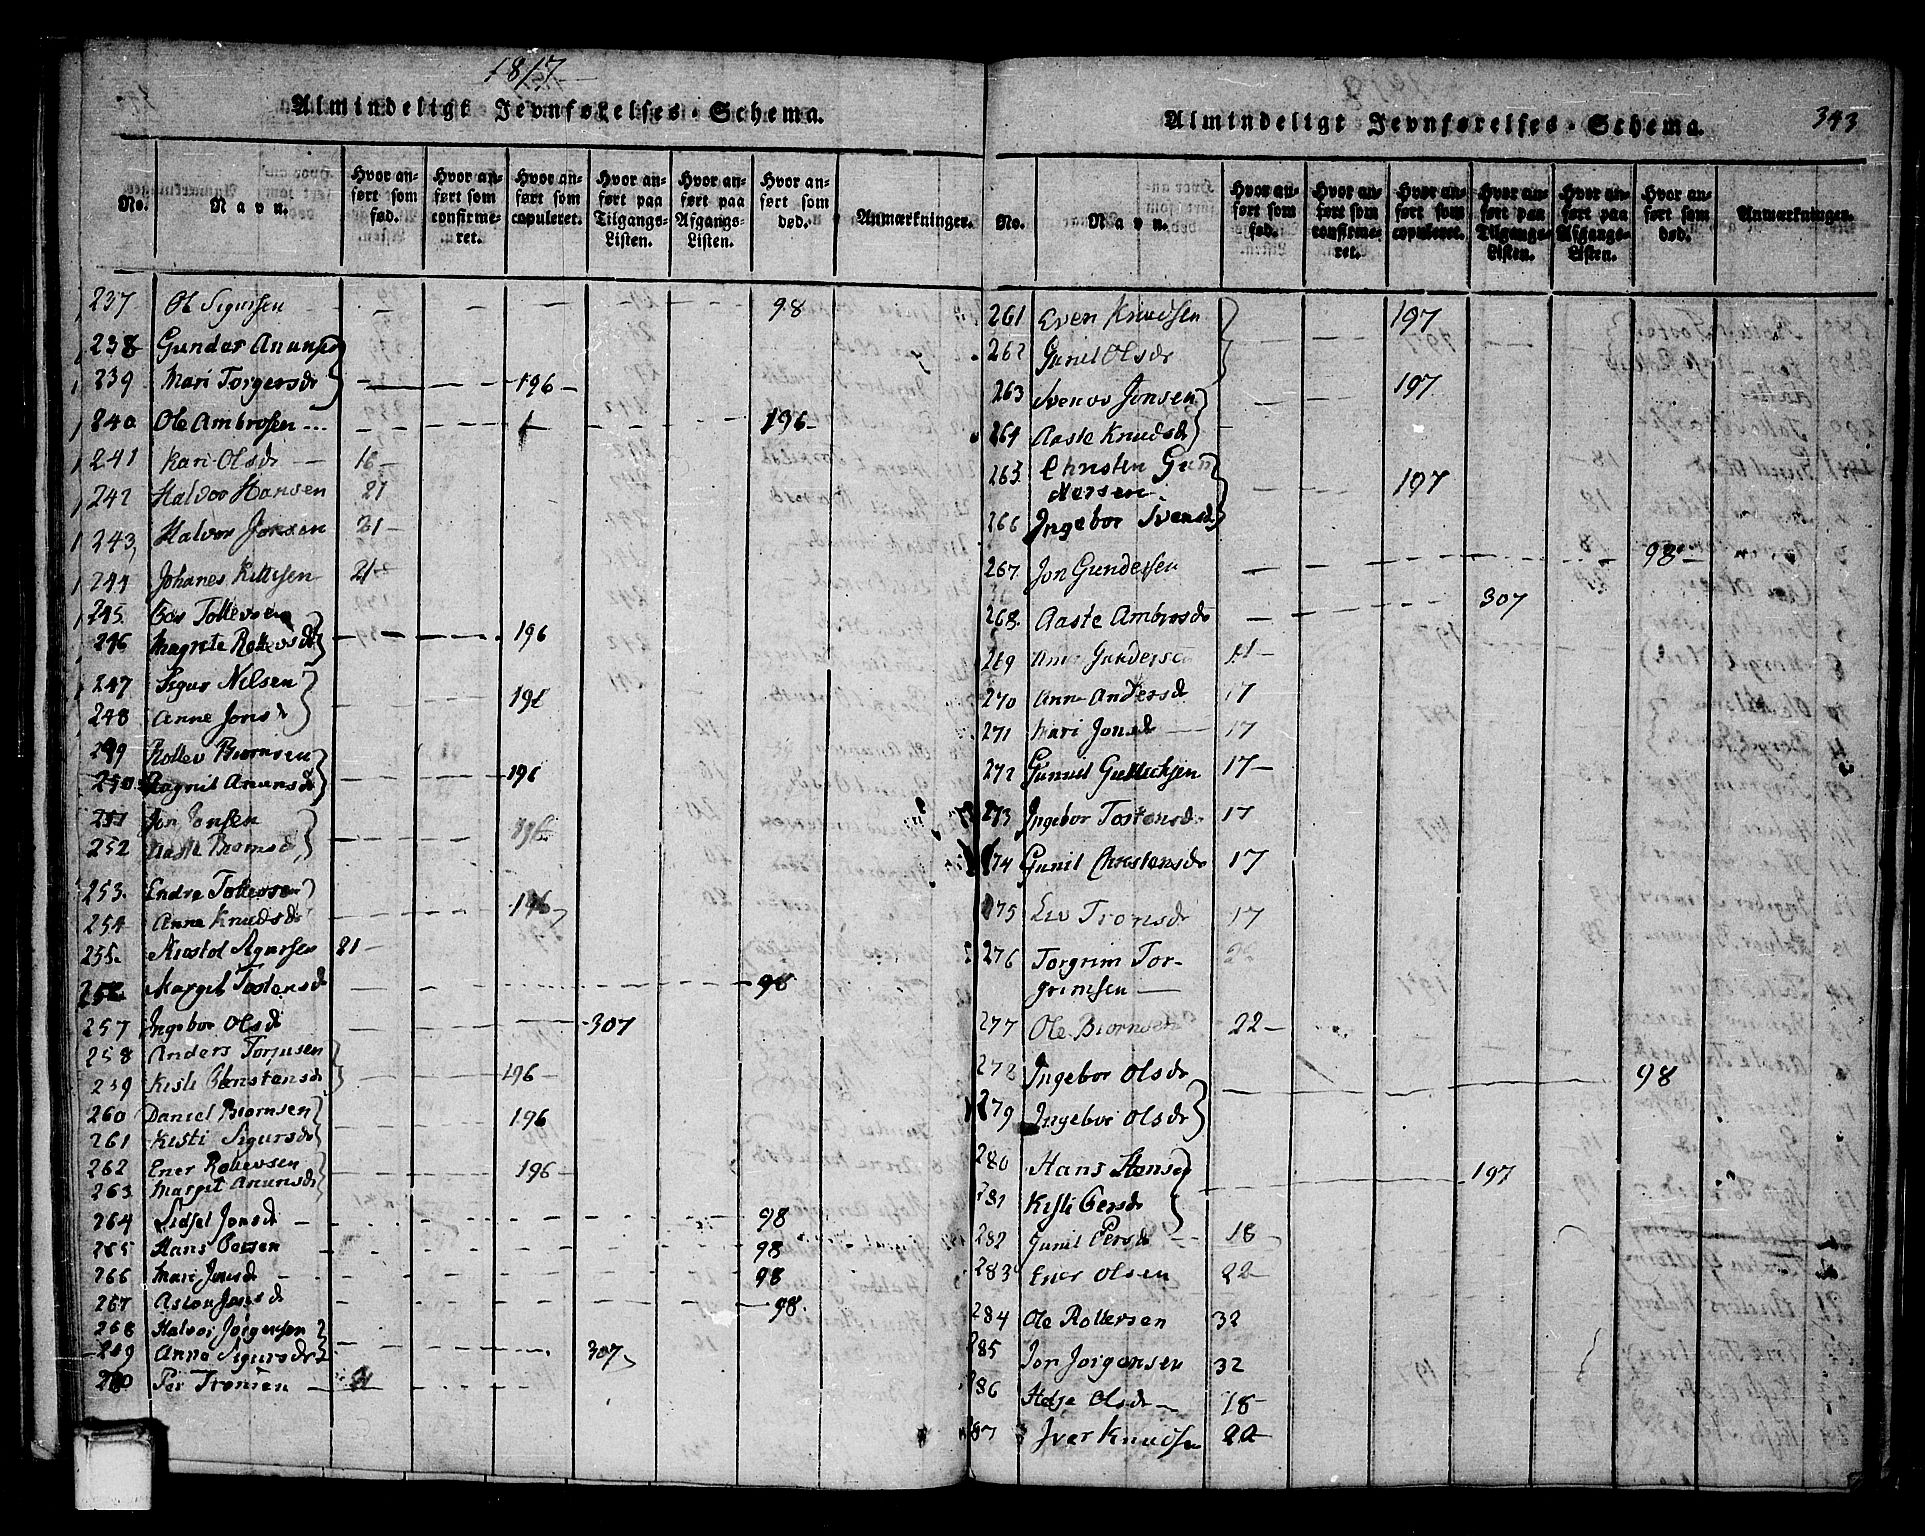 1817
Almindeligt Jevnførelses-Schema.
No. Navn. Hvor anført som fød. Hvor anført som confirmeret. Hvor anført som copuleret. Hvor anført paa Tilgangs-Listen. Hvor anført paa Afgangs-Listen. Hvor anført som død. Anmærkninger.
237 Ol Sigursen 98
238 Gunder Anunse
239 Mari Torgersdr 196
240 Ole Ambrosen 196
241 Kari Olsdr 16
242 Halvor Hansen 21
243 Halvor Jonsen 21
244 Johanes Kittisen 21
245. Tollevsen
246 Magrete Rollevsdr 196
247 Sigur Nilsen
248 Anne Jonsd 196
249 Rollev Biørnsen
250 Aagnil Anunsdr 196
251 Jon Jonsen
252 Aaste Thomsd 196
253. Endre Tollevsen
254 Anne Knudsdr 196
255. Kiøstol Sigursen 21
256 Margit Tostensd 98
257 Ingebor Olsd 307
258 Anders Torjusen
259 Kisti Christensdr 196
260 Daniel Biørnsen 196
261 Kisti Sigursdr
262 Ener Rollevsen
263 Margit Anunsdr 196
264 Sidsel Jonsd 98
265 Hans Persen 98
266 Mari Jonsd 98
267 Aslou Jonsd 98.
268 Halvor Jørgensen
269 Anne Sigursdr 307
270 Per Tronsen 21
Almindeligt Jevnførelses-Schema. 343
No. Navn. Hvor anført som fød. Hvor anført som confirmeret. Hvor anført som copuleret. Hvor anført paa Tilgangs-Listen. Hvor anført paa Afgangs-Listen. Hvor anført som død. Anmærkninger.
261 Even Knudsen 197
262 Gunil Olsdr
263 Svenov Jonsen 197
264 Aaste Knudsd
265. Christen Gun
dersen 197
266 Ingebor Svensd
267. Jon Gundersen 98
268. Aaste Ambrosdr 307
269 Gunders
270 Anne Andersdr 17
271 Kari Jonsd 17
272 Gunuil Gullichsen 17
273 Ingebor Tostensdr 17
274 Gunil Christensdr 17
275 Liv Tronsdr 17
276 Torgrim Tor-
grimsen
277 Ole Biørnsen 22
278 Ingebor Olsdr 98
279 Ingebor Olsdr
280 Hans Hansen 197
281 Kisti Persdr
282 Gunil Persdr 18
283 Ener Olsen 22
284 Ole Rollevsen 32
285 Jon Jørgensen 32
286 Helje Olsdr 18
287 Iver Knudsen 22